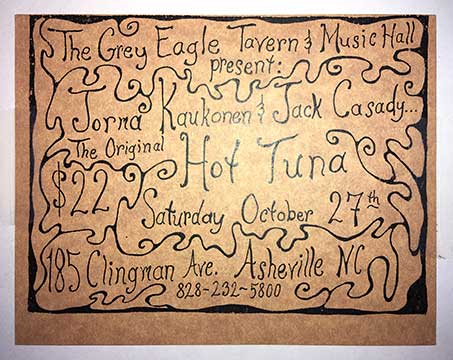 The Grey Eagle Tavern & Music Hall
present:
Jorma Kaukonen & Jack Casady...
The Original
Hot Tuna
$22
Saturday October 27th
185 Clingman Ave. Asheville NC
828-232-5800